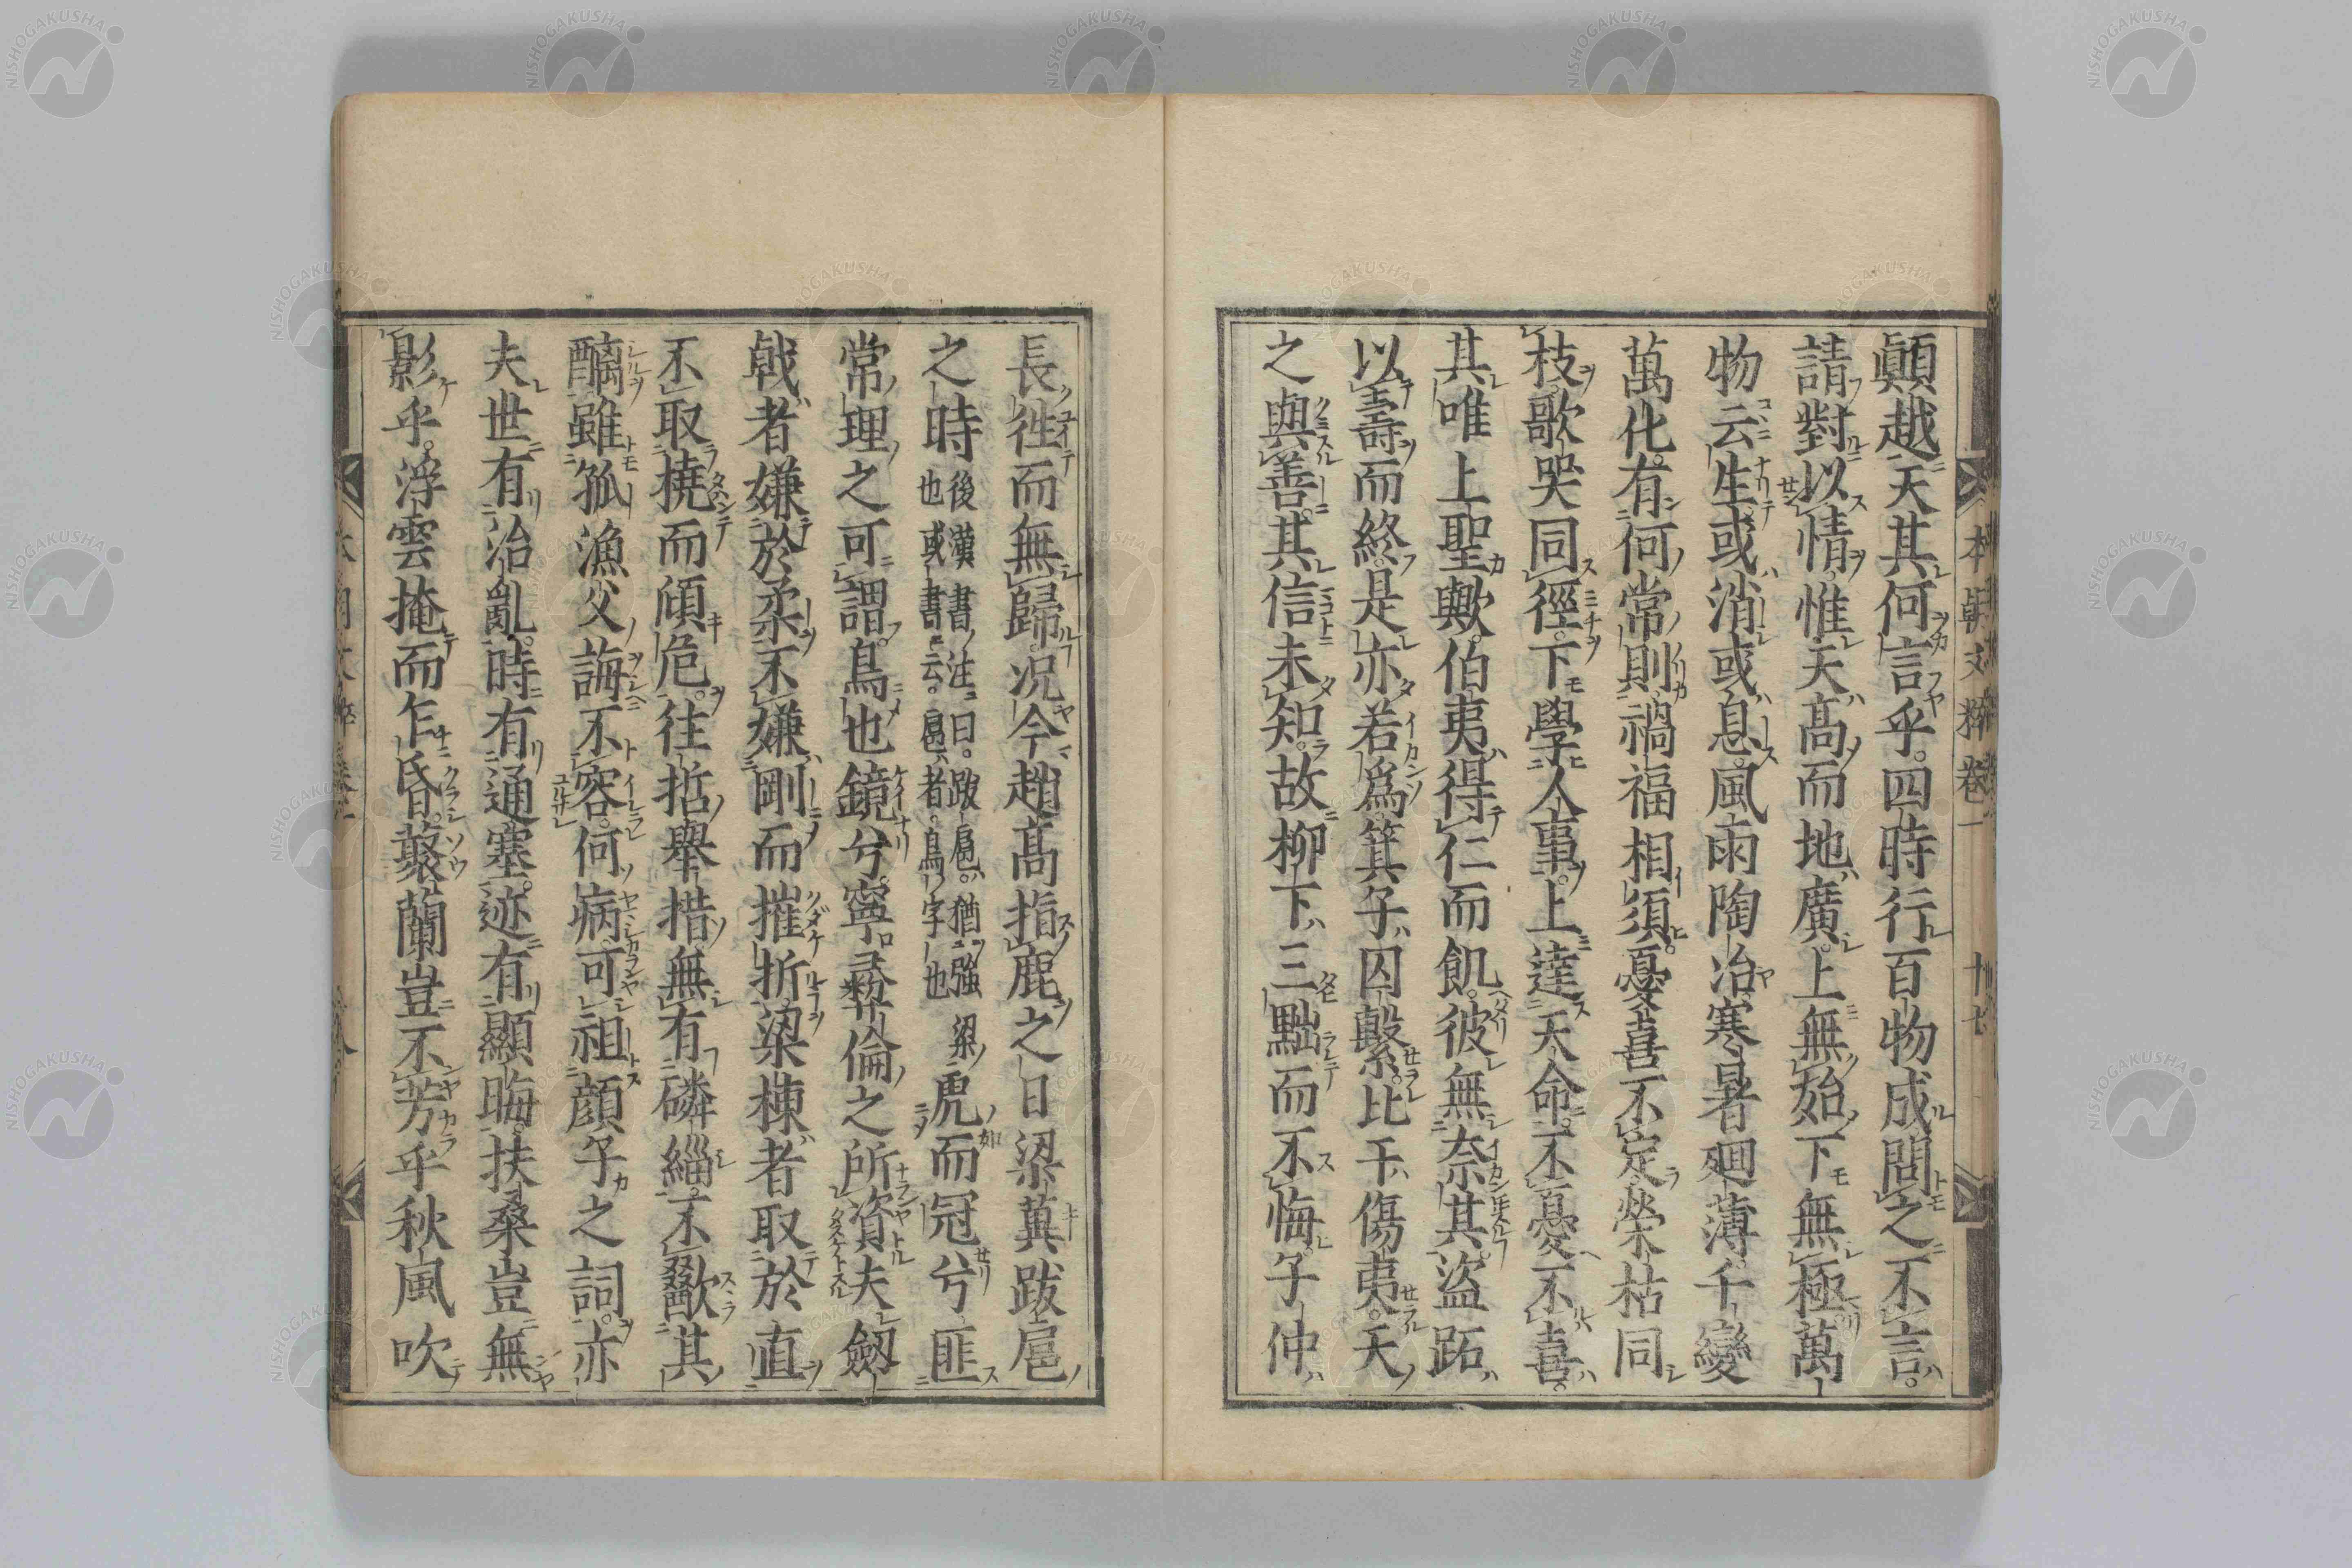 顚越天其何言乎。四時行百物成問之不言。
請對以情。惟天高而地廣。上無始下無極。萬
物云生。或消或息。風雨陶冶寒暑廻薄。千變
萬化。有何常則。禍福相須。憂喜不定榮枯同
枝。歌哭同徑。下學人事。上達天命。不憂不喜。
其唯上聖歟。伯夷得仁而飢。彼無奈其。盜跖
以壽而終。是亦若爲。箕子囚繫。比干傷夷。天
之與善。其信未知。故柳下三黜而不悔。子仲
長徃而無歸。况今趙高指鹿之日梁冀跋扈
之時後漢書注曰。跋扈。猶强梁
也或書云。扈者。鳥字也
虎而冠兮匪
常理之可謂。鳥也鏡兮。寧彛倫之所資夫劒
戟者嫌於柔不嫌剛而摧折。梁棟者取於直
不取橈而傾危。往哲舉措無有磷緇。不歠其
醨雖孤漁父誨不容。何病可祖顔子之詞。亦
夫世有治亂。時有通塞。迹有顯晦。扶桑豈無
影乎。浮雲掩而乍昏。藂蘭豈不芳乎秋風吹
本朝文粹卷一
十七
NISHOGAKUSHA